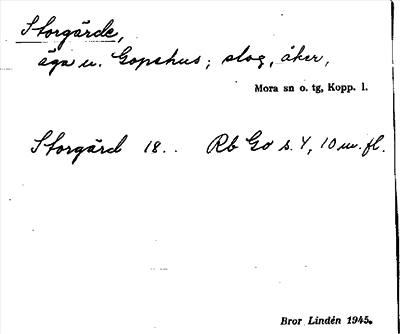 Storgärde,
äga u. Gopshus; slog, åker,
Mora sn o. tg, Kopp. l.
Storgärd 18.. Rb Go s. 4, 10 m. fl.
Bror Lindén 1945.